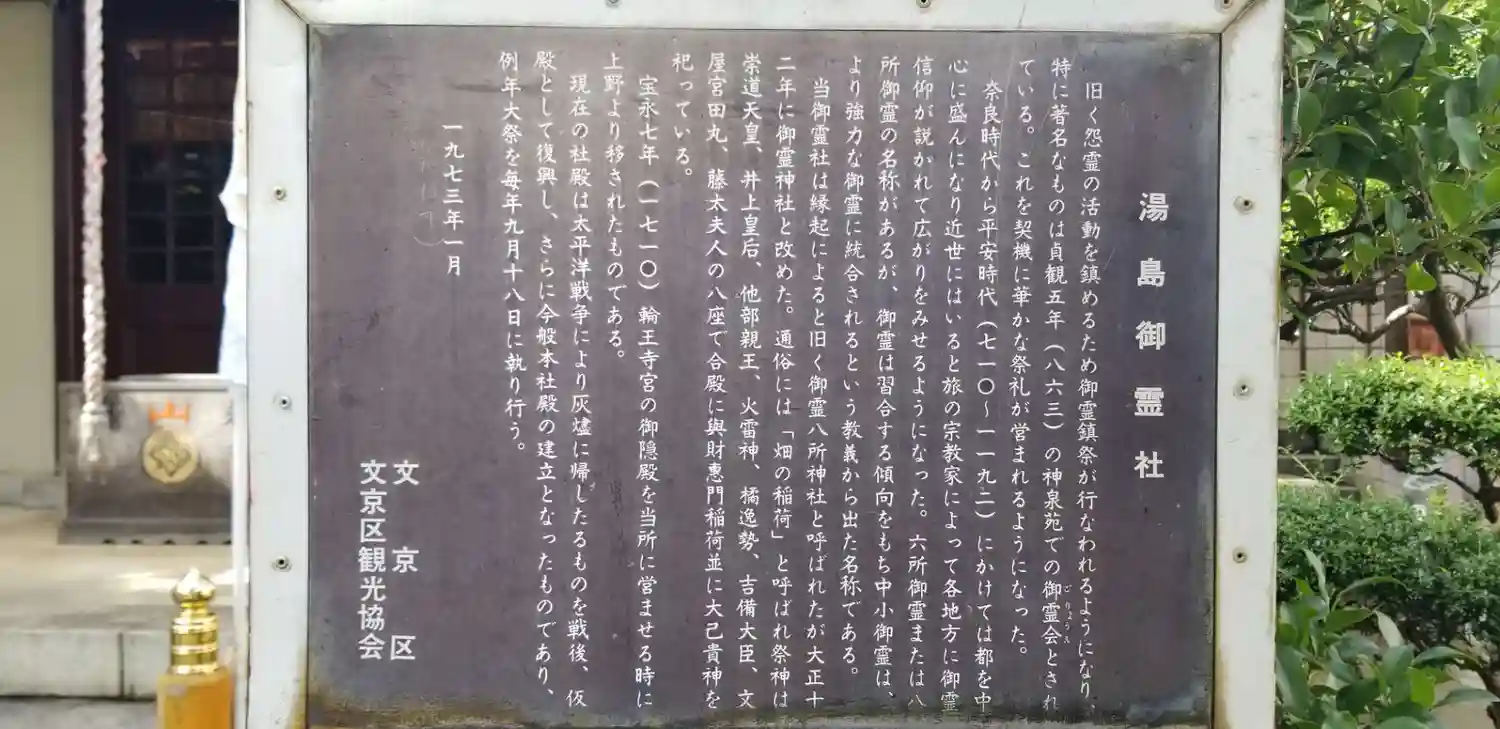 湯島御霊社
旧く怨霊の活動を鎮めるため御霊鎮祭が行なわれるようになり、
特に著名なものは貞観五年(八六三)の神泉苑での御霊会とされ
ごりょうえ
ている。これを契機に華かな祭礼が営まれるようになった。
奈良時代から平安時代(七一〇〜一一九二)にかけては都を中
心に盛んになり近世にはいると旅の宗教家によって各地方に御霊
信仰が説かれて広がりをみせるようになった。六所御霊または八
所御霊の名称があるが、御霊は習合する傾向をもち中小御霊は、
より強力な御霊に統合されるという教義から出た名称である。
当御霊社は縁起によると旧く御霊八所神社と呼ばれたが大正十
二年に御霊神社と改めた。通俗には「畑の稲荷」と呼ばれ祭神は
崇道天皇、井上皇后、他部親王、火雷神、橘逸勢、吉備大臣、文
屋宮田丸、藤太夫人の八座で合殿に與財惠門稲荷並に大己貴神を
祀っている。
宝永七年(一七一〇)輪王寺宮の御隠殿を当所に営ませる時に
上野より移されたものである。
現在の社殿は太平洋戦争により灰燼に帰したるものを戦後、仮
殿として復興し、さらに今般本社殿の建立となったものであり、
例年大祭を毎年九月十八日に執り行う。
一九七三年一月
文京区
文京区観光協会
山